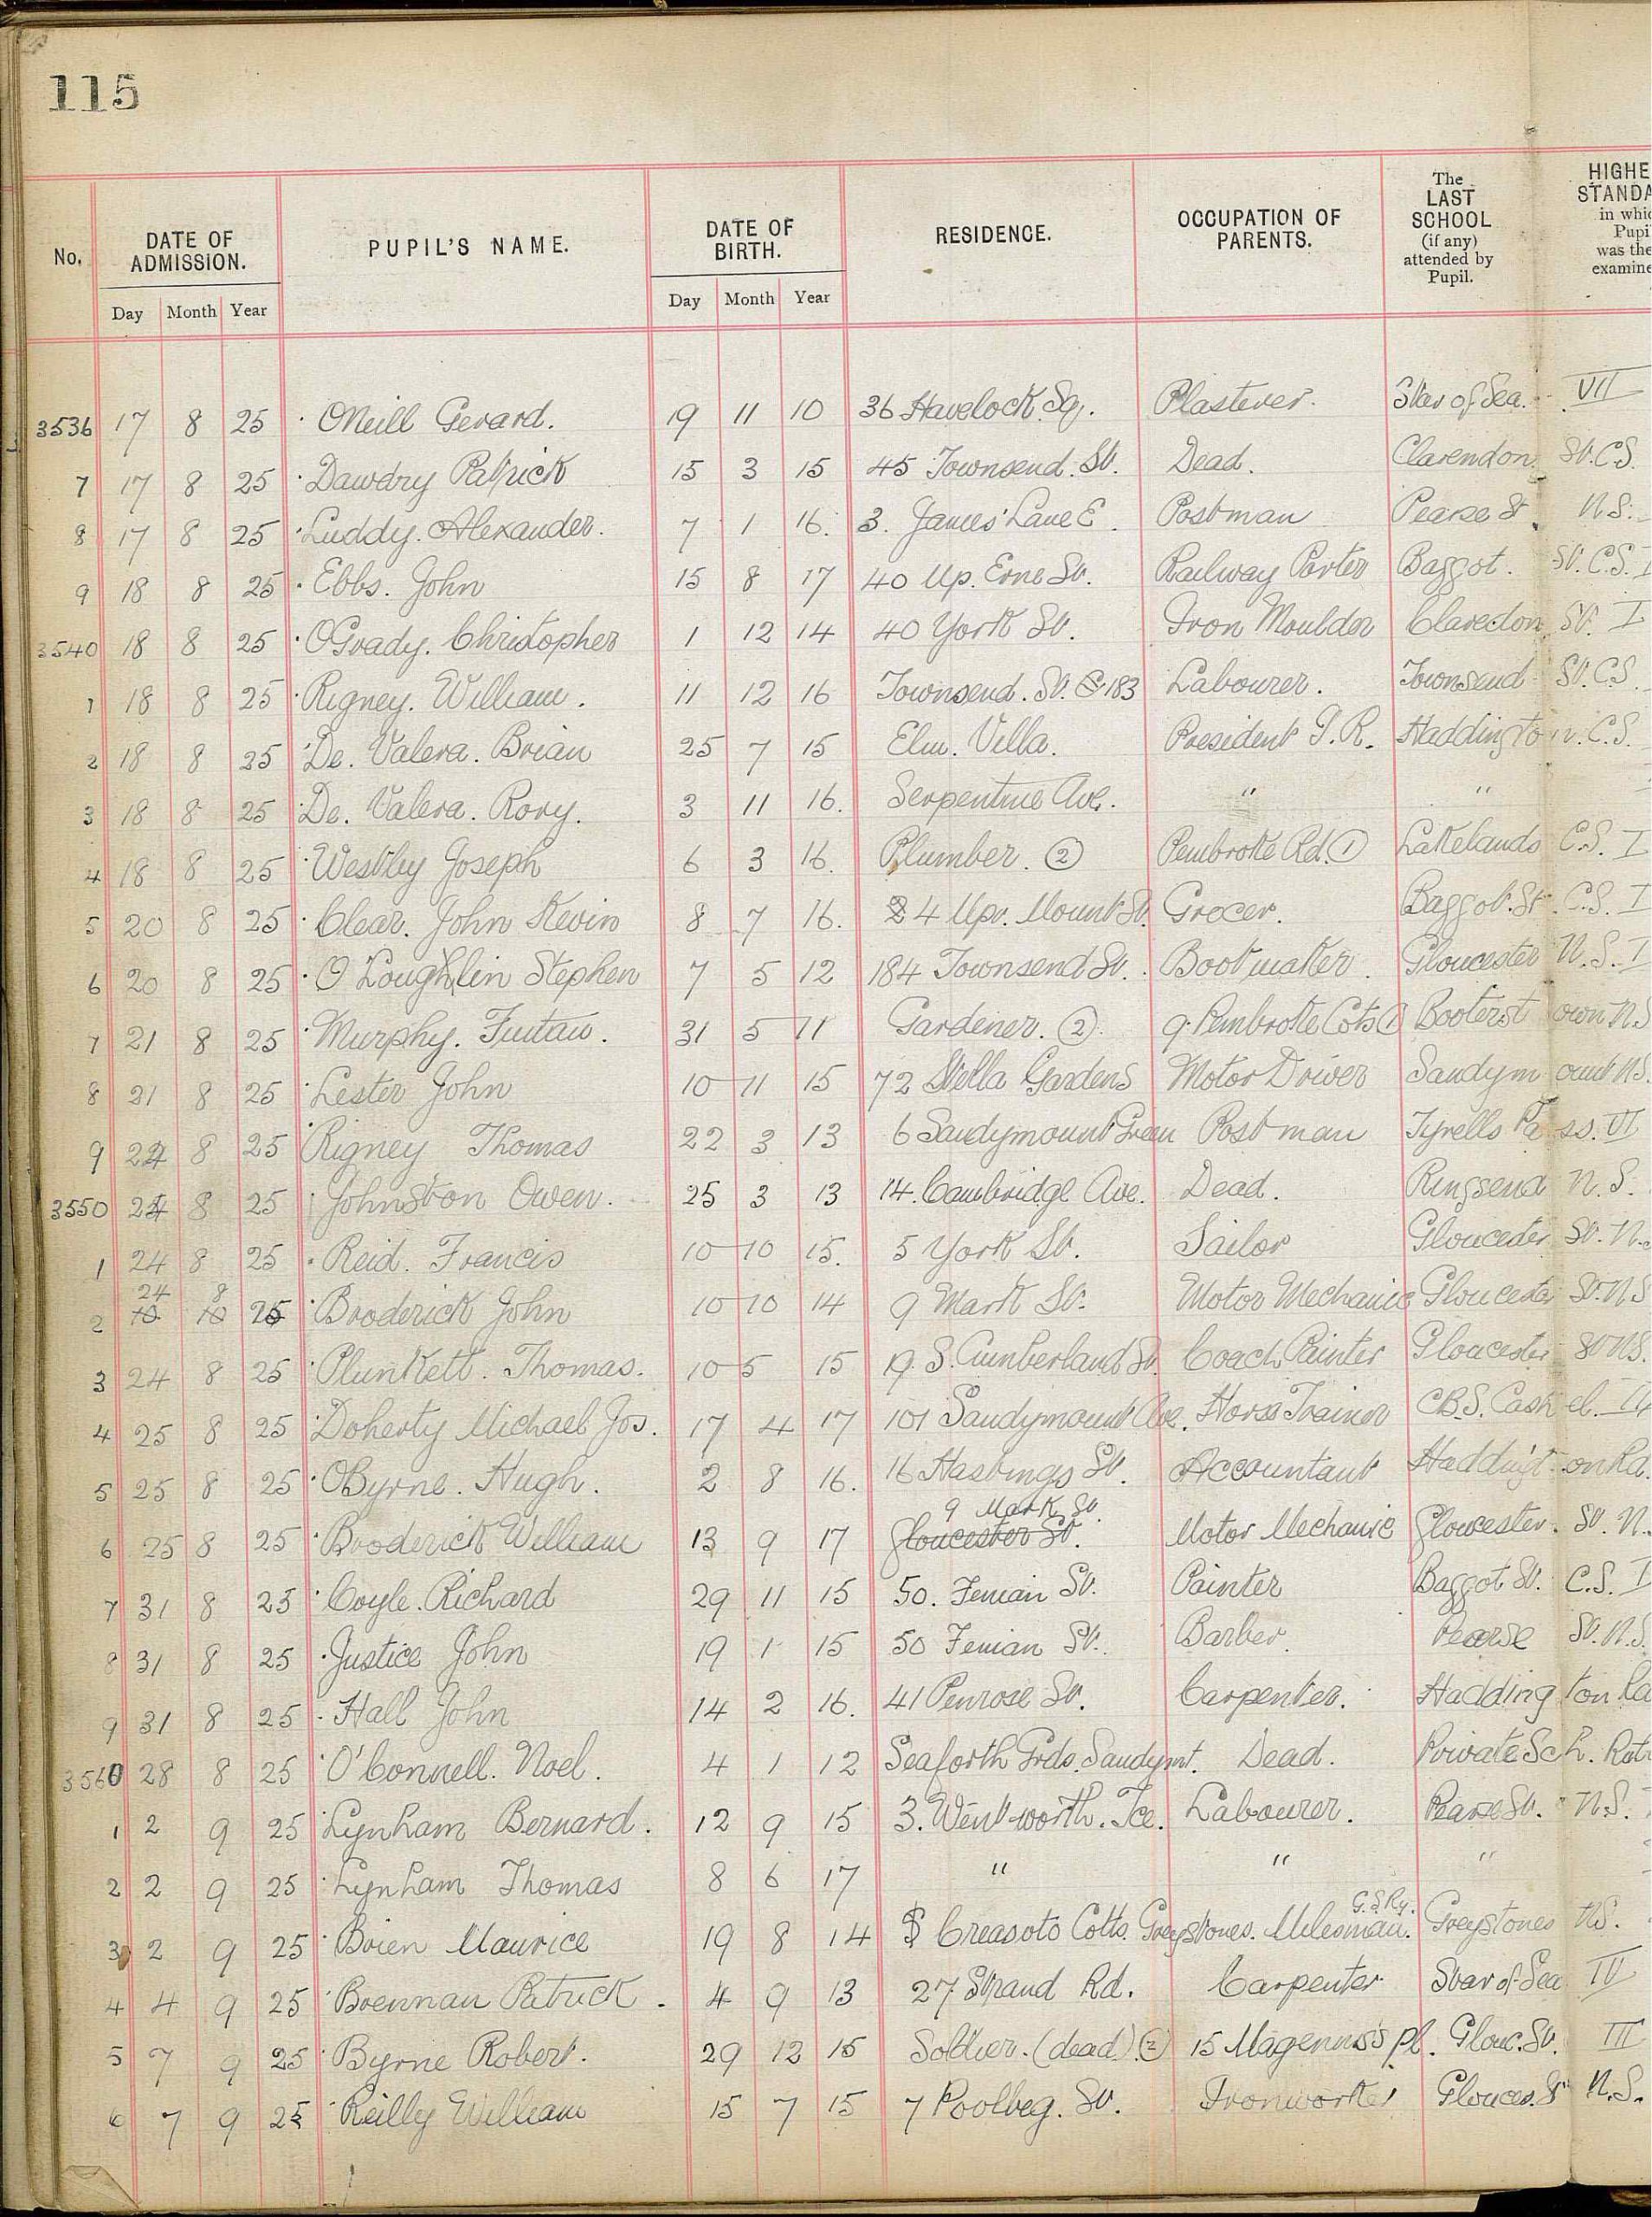 115
No. DATE OF ADMISSION. PUPIL'S NAME. DATE OF BIRTH. RESIDENCE. OCCUPATION OF PARENTS. The LAST SCHOOL (if any) attended by Pupil. HIGHE STANDA in whic Pupi was the examine
Day Month Year Day Month Year
3536 17 8 25 ONeill Gerard. 19 11 10 36 Havelock Sq. Plasterer. Star of Sea. VII
7 17 8 25 Dawdry Patrick 15 3 15 45 Townsend. St. Dead. Clarendon St. C.S.
8 17 8 25 Luddy. Alexander. 7 1 16. 3. James' Lane E. Postman Pearse St. N.S.
9 18 8 25 Ebbs. John 15 8 17 40 Up. Erne St. Railway Porter Baggot. St. C.S. I
3540 18 8 25 OGrady. Christopher 1 12 14 40 York St. Iron Moulder Claredon St. I
1 18 8 25 Rigney. William. 11 12 16 Townsend. St. 183 Labourer. Townsend St. C.S.
2 18 8 25 De. Valera. Brian 25 7 15 Elm. Villa. President I.R. Haddington. C.S.
3 18 8 25 De. Valera. Rory. 3 11 16. Serpentine Ave. " "
4 18 8 25 Westby Joseph 6 3 16. Plumber. ② Pembroke Rd. ① Lakelands C.S. I
5 20 8 25 Clear. John Kevin 8 7 16. 24 Upr. Mount St. Grocer. Baggot. St. C.S. I
6 20 8 25 O Loughlin Stephen 7 5 12 184 Townsend St. Bootmaker. Gloucester N.S. I
7 21 8 25 Murphy. Fintan. 31 5 11 Gardener. ② 9. Pembroke Cots ① Booterstown N.S
8 21 8 25 Lester John 10 11 15 72 Stella Gardens Motor Driver Sandymount N.S.
9 24 8 25 Rigney Thomas 22 3 13 6 Sandymount Green Postman Tyrells Pass. VI
3550 24 8 25 Johnston Owen. 25 3 13 14. Cambridge Ave. Dead. Ringsend N.S.
1 24 8 25 Reid. Francis 10 10 15. 5 York St. Sailor Gloucester St. N.
24 8
2 10 10 25 Broderick John 10 10 14 9 Mark St. Motor Mechanic Gloucester St. N.S
3 24 8 25 Plunkett. Thomas. 10 5 15 19. S. Cumberland St. Coach Painter Gloucester St N.S.
4 25 8 25 Doherty Michael Jos. 17 4 17 101 Sandymount Ave. Horse Trainer C.B.S. Cashel.
5 25 8 25 OByrne. Hugh. 2 8 16. 16 Hastings St. Accountant Haddington Rd.
9 Mark St.
6 25 8 25 Broderick William 13 9 17 Gloucester St. Motor Mechanic Gloucester. St. N.
7 31 8 25 Coyle. Richard 29 11 15 50. Fenian St. Painter Baggot St. C.S. I
8 31 8 25 Justice John 19 1 15 50 Fenian St. Barber. Pearse St. N.S.
9 31 8 25 Hall John 14 2 16. 41 Penrose St. Carpenter. Haddington Rd
3560 28 8 25 O'Connell. Noel. 4 1 12 Seaforth Grds. Sandymt. Dead. Private Sch.
1 2 9 25 Lynham Bernard. 12 9 15 3. Wentworth. Tce. Labourer. Pearse St. N.S.
2 2 9 25 Lynham Thomas 8 6 17 " " "
G.S.Ry.
3 2 9 25 Brien Maurice 19 8 14 Creasoto Cotts. Greystones. Milesman. Greystones N.S.
4 4 9 25 Brennan Patrick. 4 9 13 27 Strand Rd. Carpenter Star of Sea IV
5 7 9 25 Byrne Robert. 29 12 15 Soldier. (dead) ② 15 Magennis's Pl. Glouc. St. III
6 7 9 25 Reilly William 15 7 15 7 Poolbeg. St. Ironworker Glouces. St N.S.